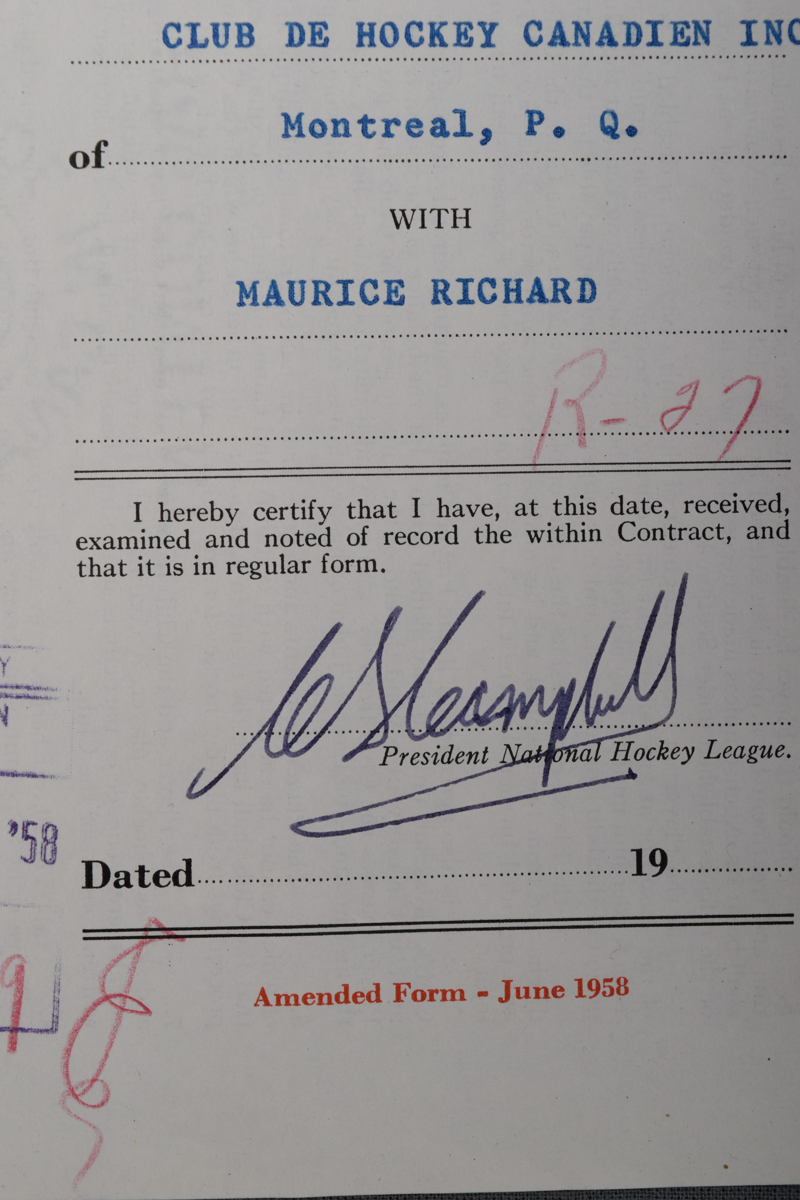 CLUB DE HOCKEY CANADIEN INC
of Montreal, P. Q.
WITH
MAURICE RICHARD
R-27
I hereby certify that I have, at this date, received,
examined and noted of record the within Contract, and
that it is in regular form.
CSCampbell
President National Hockey League.
Y
N
'58
Dated 19
9
Amended Form - June 1958